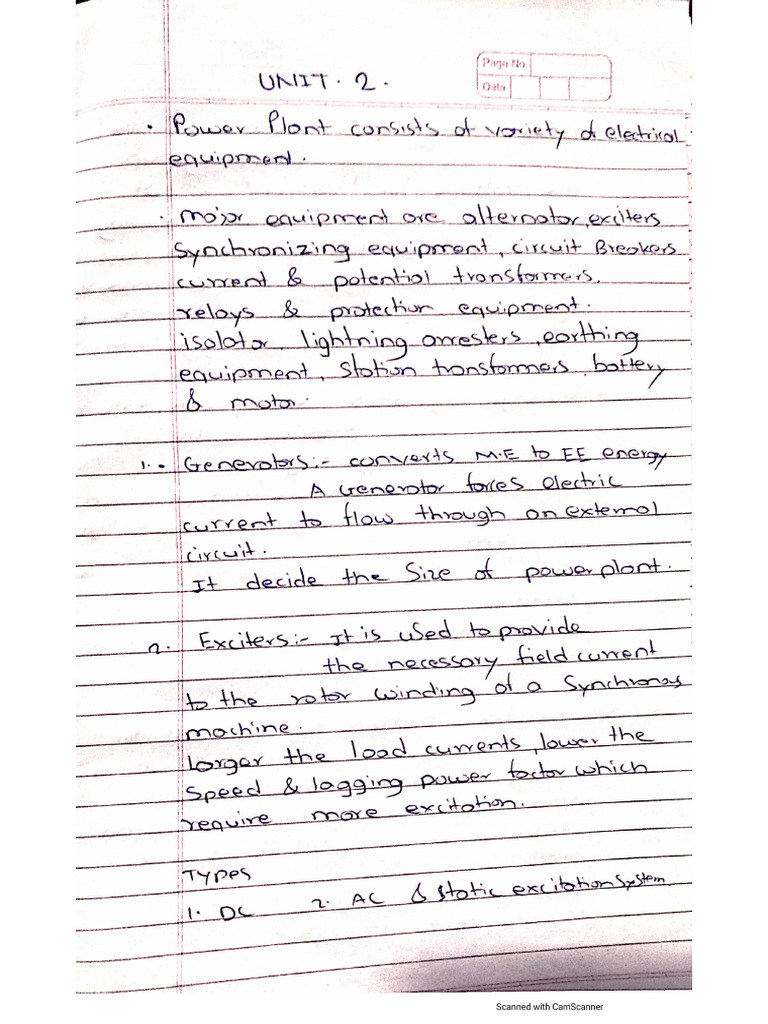 Page No.
Date
UNIT. 2.
• Power Plant consists of variety of electrical
equipment.
• major equipment are alternator, exciters
Synchronizing equipment, circuit Breakers
current & potential transformers.
relays & protection equipment.
isolator, lightning arresters, earthing
equipment, station transformers, battery
& motor.
1. • Generators:- converts M.E to EE energy
A Generator forces electric
current to flow through an external
circuit.
It decide the Size of power plant.
2. Exciters:- It is used to provide
the necessary field current
to the rotor winding of a Synchronous
machine.
Larger the load currents, lower the
Speed & lagging power factor which
require more excitation.
TYPes
1. DC 2. AC & static excitation System.
Scanned with CamScanner